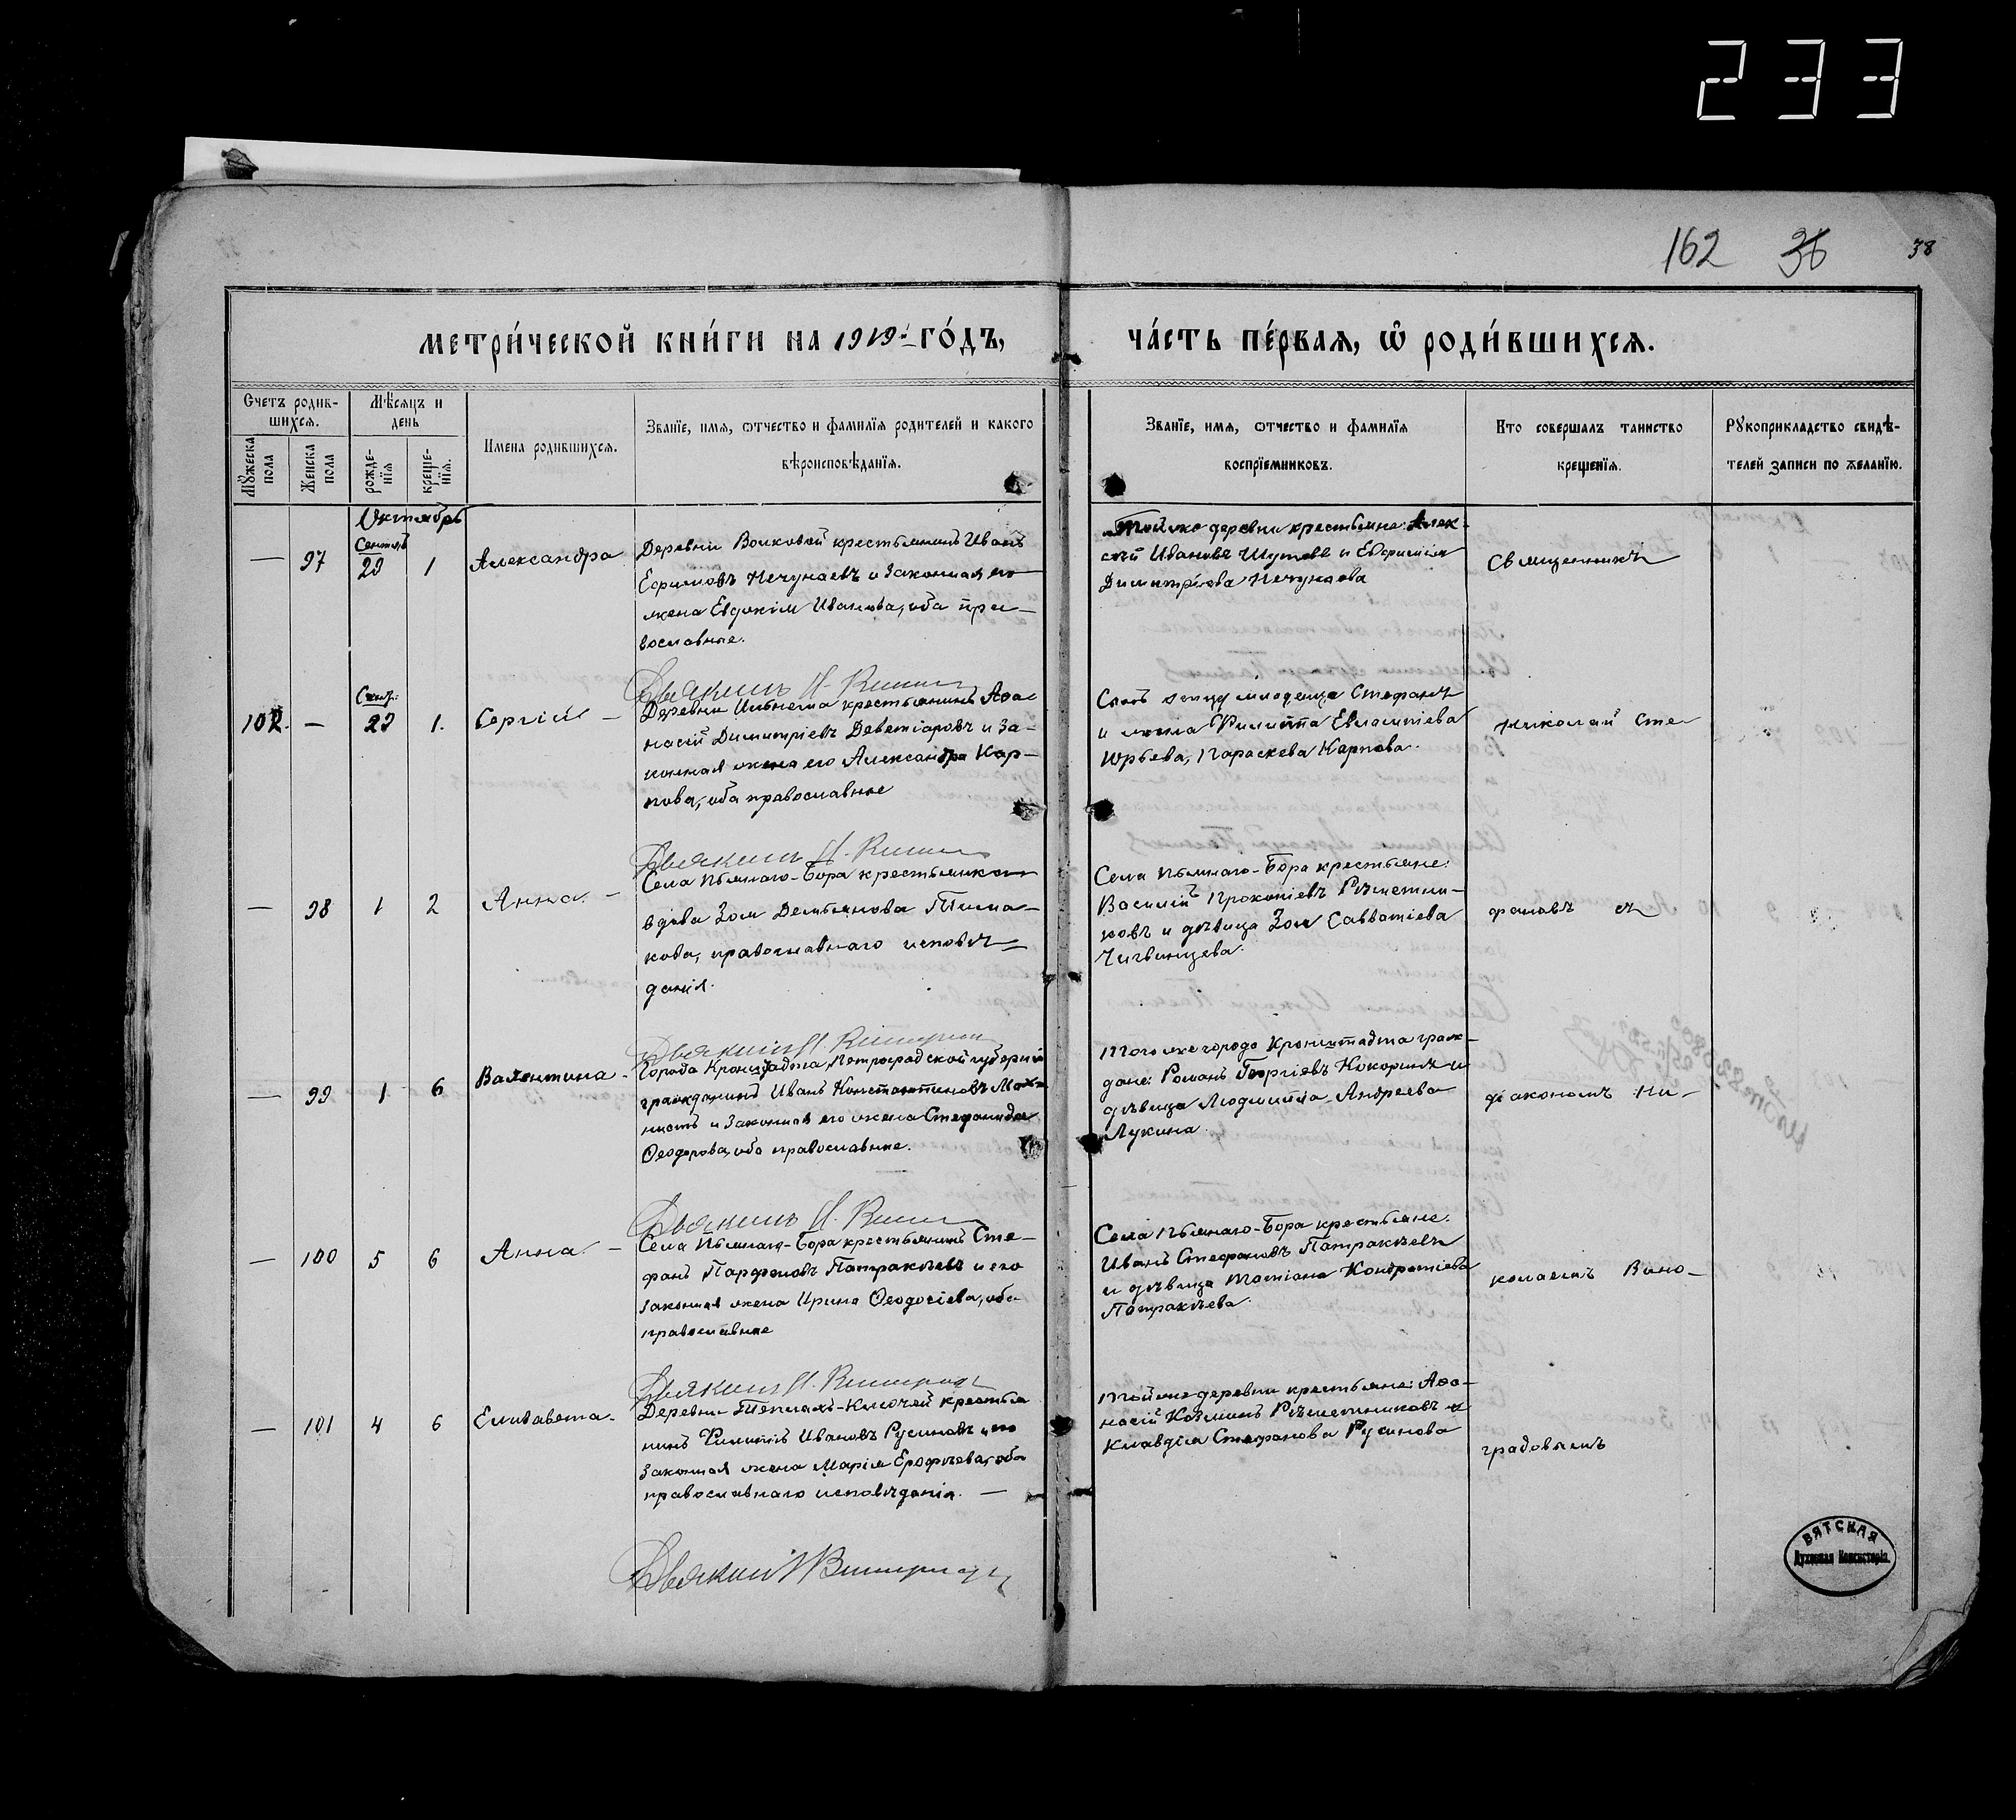 233
162 36 38
МЕТРИ́ЧЕСКОЙ КНИ́ГИ НА 1919 й ГО́ДЪ,
ЧА́СТЬ ПЕ́РВАЯ, Ѡ РОДИ́ВШИХСЯ.
Счетъ родив-
шихся.
Мꙋжеска
пола
Женска
пола
Мѣсяцъ и
день
рожде-
нїя
креще-
нїя.
Имена родившихся.
Званїе, имя, ѿтчество и фамилїя родителей и какого
вѣроисповѣданїя.
Званїе, имя, ѿтчество и фамилїя
воспрїемниковъ.
Кто совершалъ таинство
крещенїя.
Рꙋкоприкладство свидѣ-
телей записи по желанїю.
Октябрь
— 97
Сентяб
29 1
Александра
Деревни Волковой крестьянинъ Иванъ
Ефимовъ Нечунаевъ и законная его
жена Евдокія Иванова, оба пра-
вославные.
Той же деревни крестьяне: Алек-
сѣй Ивановъ Шутовъ и Евфимія
Димитріева Нечунаева
Священникъ
Дьяконъ Н.
102. —
Сент:
29 1.
Сергій —
Деревни крестьянинъ Аѳа-
насій Димитріевъ Деветіяровъ и за-
конная жена его Александра Кар-
пова, оба православные
Сынъ отца младенца Стефанъ
и жена Филиппа Евлампіева
Юрьева, Параскева Карпова.
Николай Сте-
Дьяконъ Н.
— 98 1 2
Анна. —
Села Пьянаго-Бора крестьянская
вдова Зоя Демьянова
кова, православнаго исповѣ-
данія.
Села Пьянаго-Бора крестьяне:
Василій Прокопіевъ Рѣшетни-
ковъ и дѣвица Зоя Савватіева
Чигвинцева.
фановъ съ
Дьяконъ Н.
— 99 1 6
Валентина -
Города Кронштадта, Петроградской губерніи
гражданинъ Иванъ Константиновъ
и законная его жена Стефанида
Ѳеодорова, оба православные.
Того же города Кронштадта граж-
дане: Романъ Георгіевъ Кокоринъ и
дѣвица Людмила Андреева
Лукина.
діакономъ Ни-
Дьяконъ Н.
— 100 5 6
Анна. —
Села Пьянаго-Бора крестьянинъ Сте-
фанъ Парфеновъ Патракѣевъ и его
законная жена Ирина Ѳеодосіева, оба
православные
Села Пьянаго-Бора крестьяне:
Иванъ Стефановъ Патракѣевъ
и дѣвица Татіана Кондратіева
Патракѣева.
колаемъ Вино-
Дьяконъ Н.
— 101 4 6
Елизавета.
Деревни Теплыхъ-Ключей крестья
нинъ Филиппъ Ивановъ Русиновъ и его
законная жена Марія Ерофѣева, оба
православнаго исповѣданія. —
Той же деревни крестьяне: Аѳа-
насій Козминъ Рѣшетниковъ и
Клавдія Стефанова Русинова
градовымъ
Дьяконъ
ВЯТСКАЯ
Духовная Консисторія.